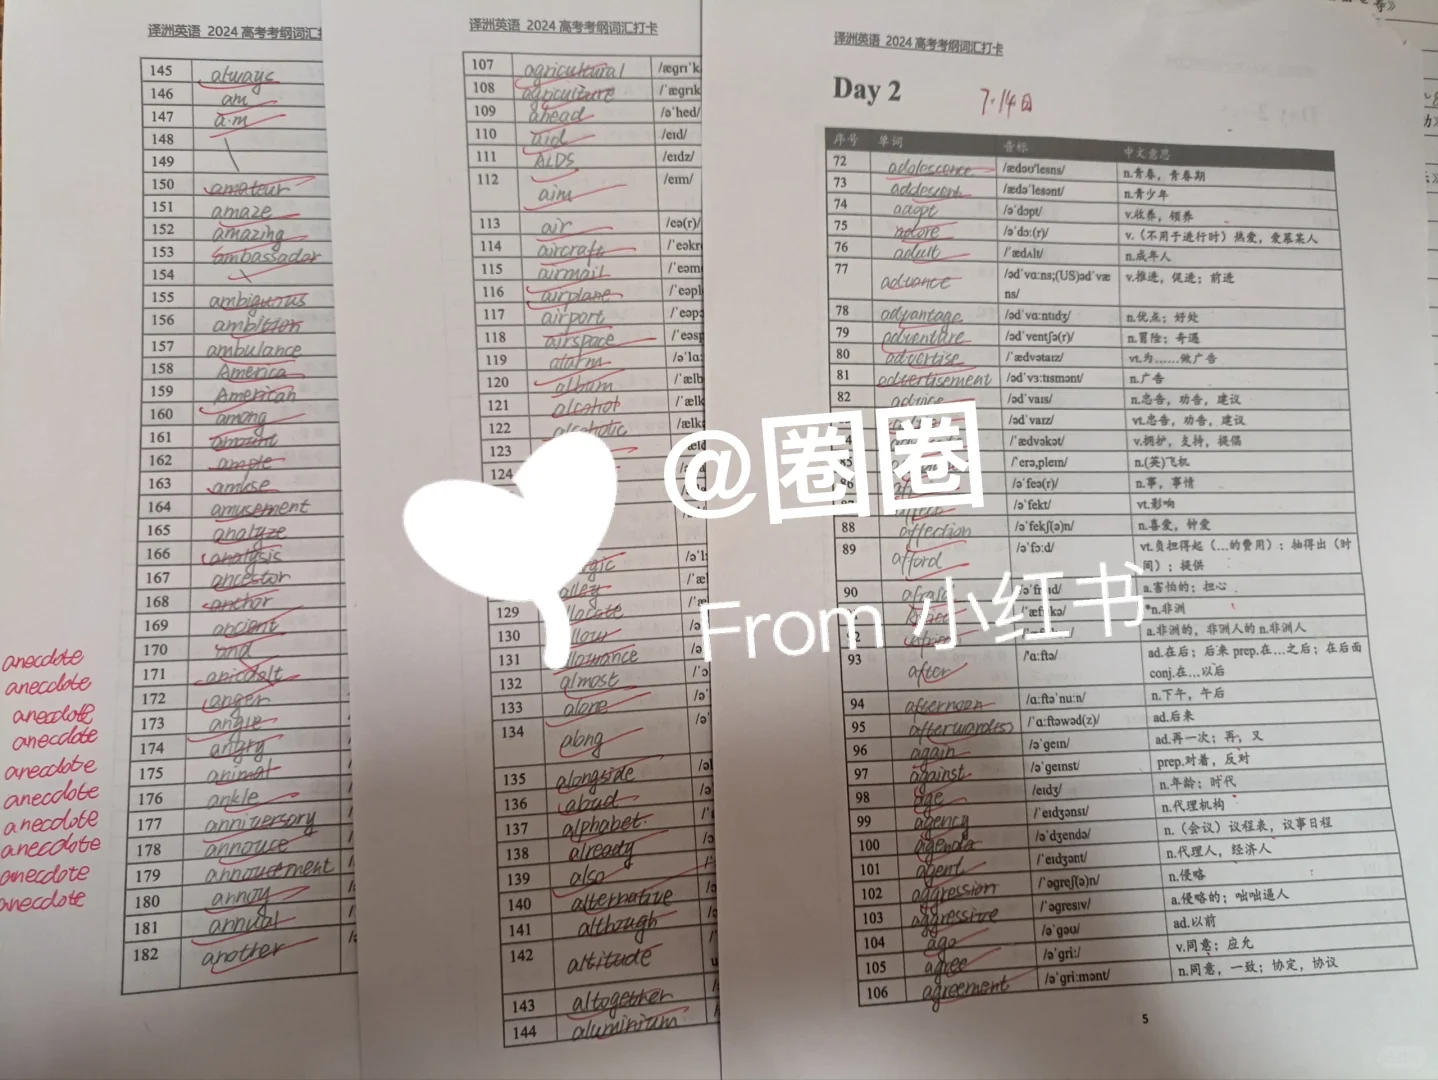 泽洲英语 2024高考考纲词汇打卡
145 always
146 am
147 a.m
148
149
150 amateur
151 amaze
152 amazing
153 ambassador
154
155 ambiguous
156 ambition
157 ambulance
158 America
159 American
160 among
161 amount
162 ample
163 amuse
164 amusement
165 analyze
166 analysis
167 ancestor
168 anchor
169 ancient
170 and
171 anicdolt
172 anger
173 angle
174 angry
175 animal
176 ankle
177 anniversory
178 annouce
179 annoucement
180 annoy
181 annual
182 another
anecdote
anecdote
anecdote
anecdote
anecdote
anecdote
anecdote
anecdote
anecdote
anecdote
泽洲英语 2024高考考纲词汇打卡
107 agricultural /ægrɪˈk
108 agriculture /ˈægrɪk
109 ahead /əˈhed/
110 aid /eɪd/
111 AIDS /eɪdz/
112 aim /eɪm/
113 air /eə(r)/
114 aircraft /ˈeəkr
115 airmail /ˈeəm
116 airplane /ˈeəpl
117 airport /ˈeəpɔ
118 airspace /ˈeəsp
119 alarm /əˈlɑː
120 album /ˈælb
121 alcohol /ˈælk
122 alcoholic /ælk
123
124
gic /əˈl
alley /ˈæl
129 llocate /ˈæ
130 llow
131 llowance
132 almost
133 alone
134 along
135 alongside
136 aloud
137 alphabet
138 already
139 also
140 alternative
141 although
142 altitude
143 altogether
144 aluminium
泽洲英语 2024高考考纲词汇打卡
Day 2 7.14日
序号 单词 音标 中文意思
72 adolescence /ædəʊˈlesns/ n.青春，青春期
73 adolescent /ædəˈlesənt/ n.青少年
74 adopt /əˈdɒpt/ v.收养，领养
75 adore /əˈdɔː(r)/ v.（不用于进行时）热爱，爱慕某人
76 adult /ˈædʌlt/ n.成年人
77 advance /ədˈvɑːns;(US)ədˈvæns/ v.推进，促进；前进
78 advantage /ədˈvɑːntɪdʒ/ n.优点；好处
79 adventure /ədˈventʃə(r)/ n.冒险；奇遇
80 advertise /ˈædvətaɪz/ vt.为……做广告
81 advertisement /ədˈvɜːtɪsmənt/ n.广告
82 advice /ədˈvaɪs/ n.忠告，劝告，建议
/ədˈvaɪz/ vt.忠告，劝告，建议
/ˈædvəkət/ v.拥护，支持，提倡
85 /ˈerəˌpleɪn/ n.(英)飞机
86 /əˈfeə(r)/ n.事，事情
/əˈfekt/ vt.影响
88 affection /əˈfekʃ(ə)n/ n.喜爱，钟爱
89 afford /əˈfɔːd/ vt.负担得起（…的费用）；抽得出（时间）；提供
90 afraid a.害怕的；担心
*n.非洲
92 a.非洲的，非洲人的 n.非洲人
93 after /ˈɑːftə/ ad.在后；后来 prep.在…之后；在后面 conj.在…以后
94 afternoon /ɑːftəˈnuːn/ n.下午，午后
95 afterward(s) /ˈɑːftəwəd(z)/ ad.后来
96 again /əˈgeɪn/ ad.再一次；再，又
97 against /əˈgeɪnst/ prep.对着，反对
98 age /eɪdʒ/ n.年龄；时代
99 agency /ˈeɪdʒənsɪ/ n.代理机构
100 agenda /əˈdʒendə/ n.（会议）议程表，议事日程
101 agent /ˈeɪdʒənt/ n.代理人，经济人
102 aggression /ˈəgreʃ(ə)n/ n.侵略
103 aggressive /ˈəgresɪv/ a.侵略的；咄咄逼人
104 ago /əˈgəʊ/ ad.以前
105 agree /əˈgriː/ v.同意；应允
106 agreement /əˈgriːmənt/ n.同意，一致；协定，协议
5
@圈圈
From 小红书